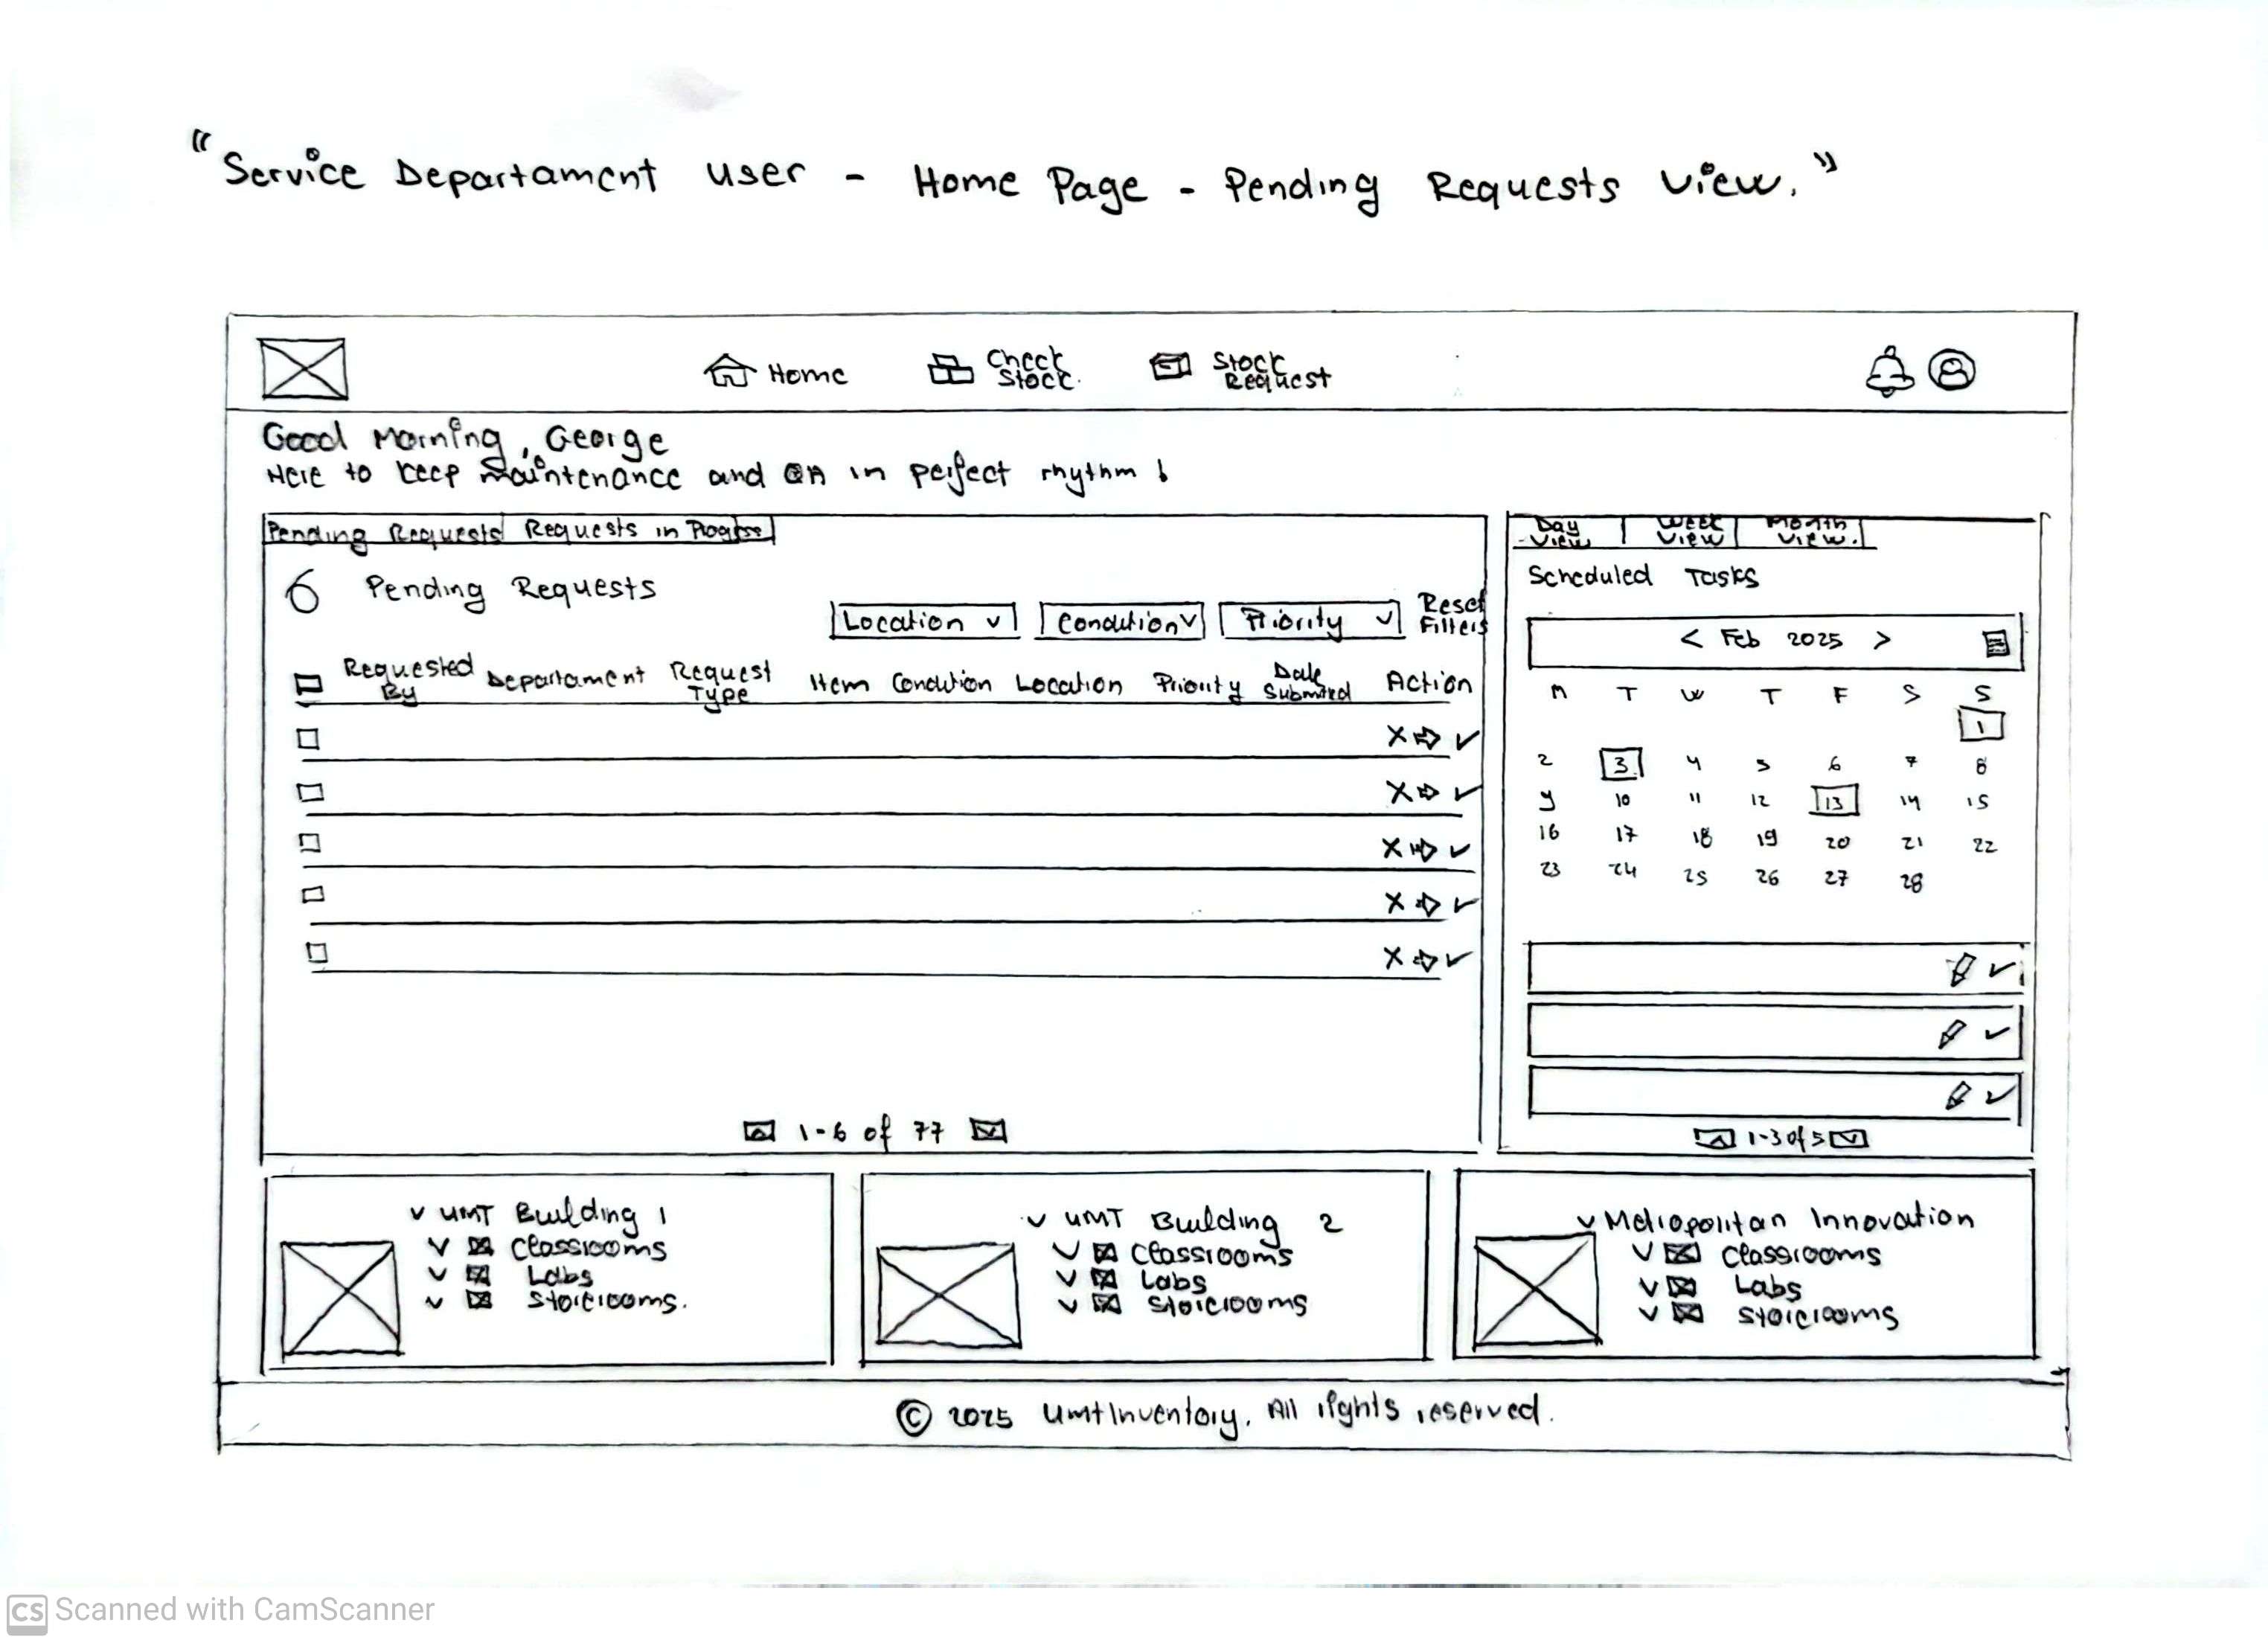 "Service Departament User - Home Page - Pending Requests View."
Home
Check
Stock.
Stock
Request
Good Morning, George
Here to keep maintenance and QA in perfect rhythm!
Pending Requests Requests in Progress
6 Pending Requests
Location
Condition
Priority
Reset
Filters
Requested
By
Departament
Request
Type
Item
Condition
Location
Priority
Date
Submitted
Action
Day
View
Week
View
Month
View.
Scheduled Tasks
< Feb 2025 >
M T W T F S S
1
2 3 4 5 6 7 8
9 10 11 12 13 14 15
16 17 18 19 20 21 22
23 24 25 26 27 28
1-6 of 77
1-3 of 5
UMT Building 1
Classrooms
Labs
Storerooms.
UMT Building 2
Classrooms
Labs
Storerooms
Metropolitan Innovation
Classrooms
Labs
Storerooms
© 2025 UmtInventory. All rights reserved.
CS Scanned with CamScanner